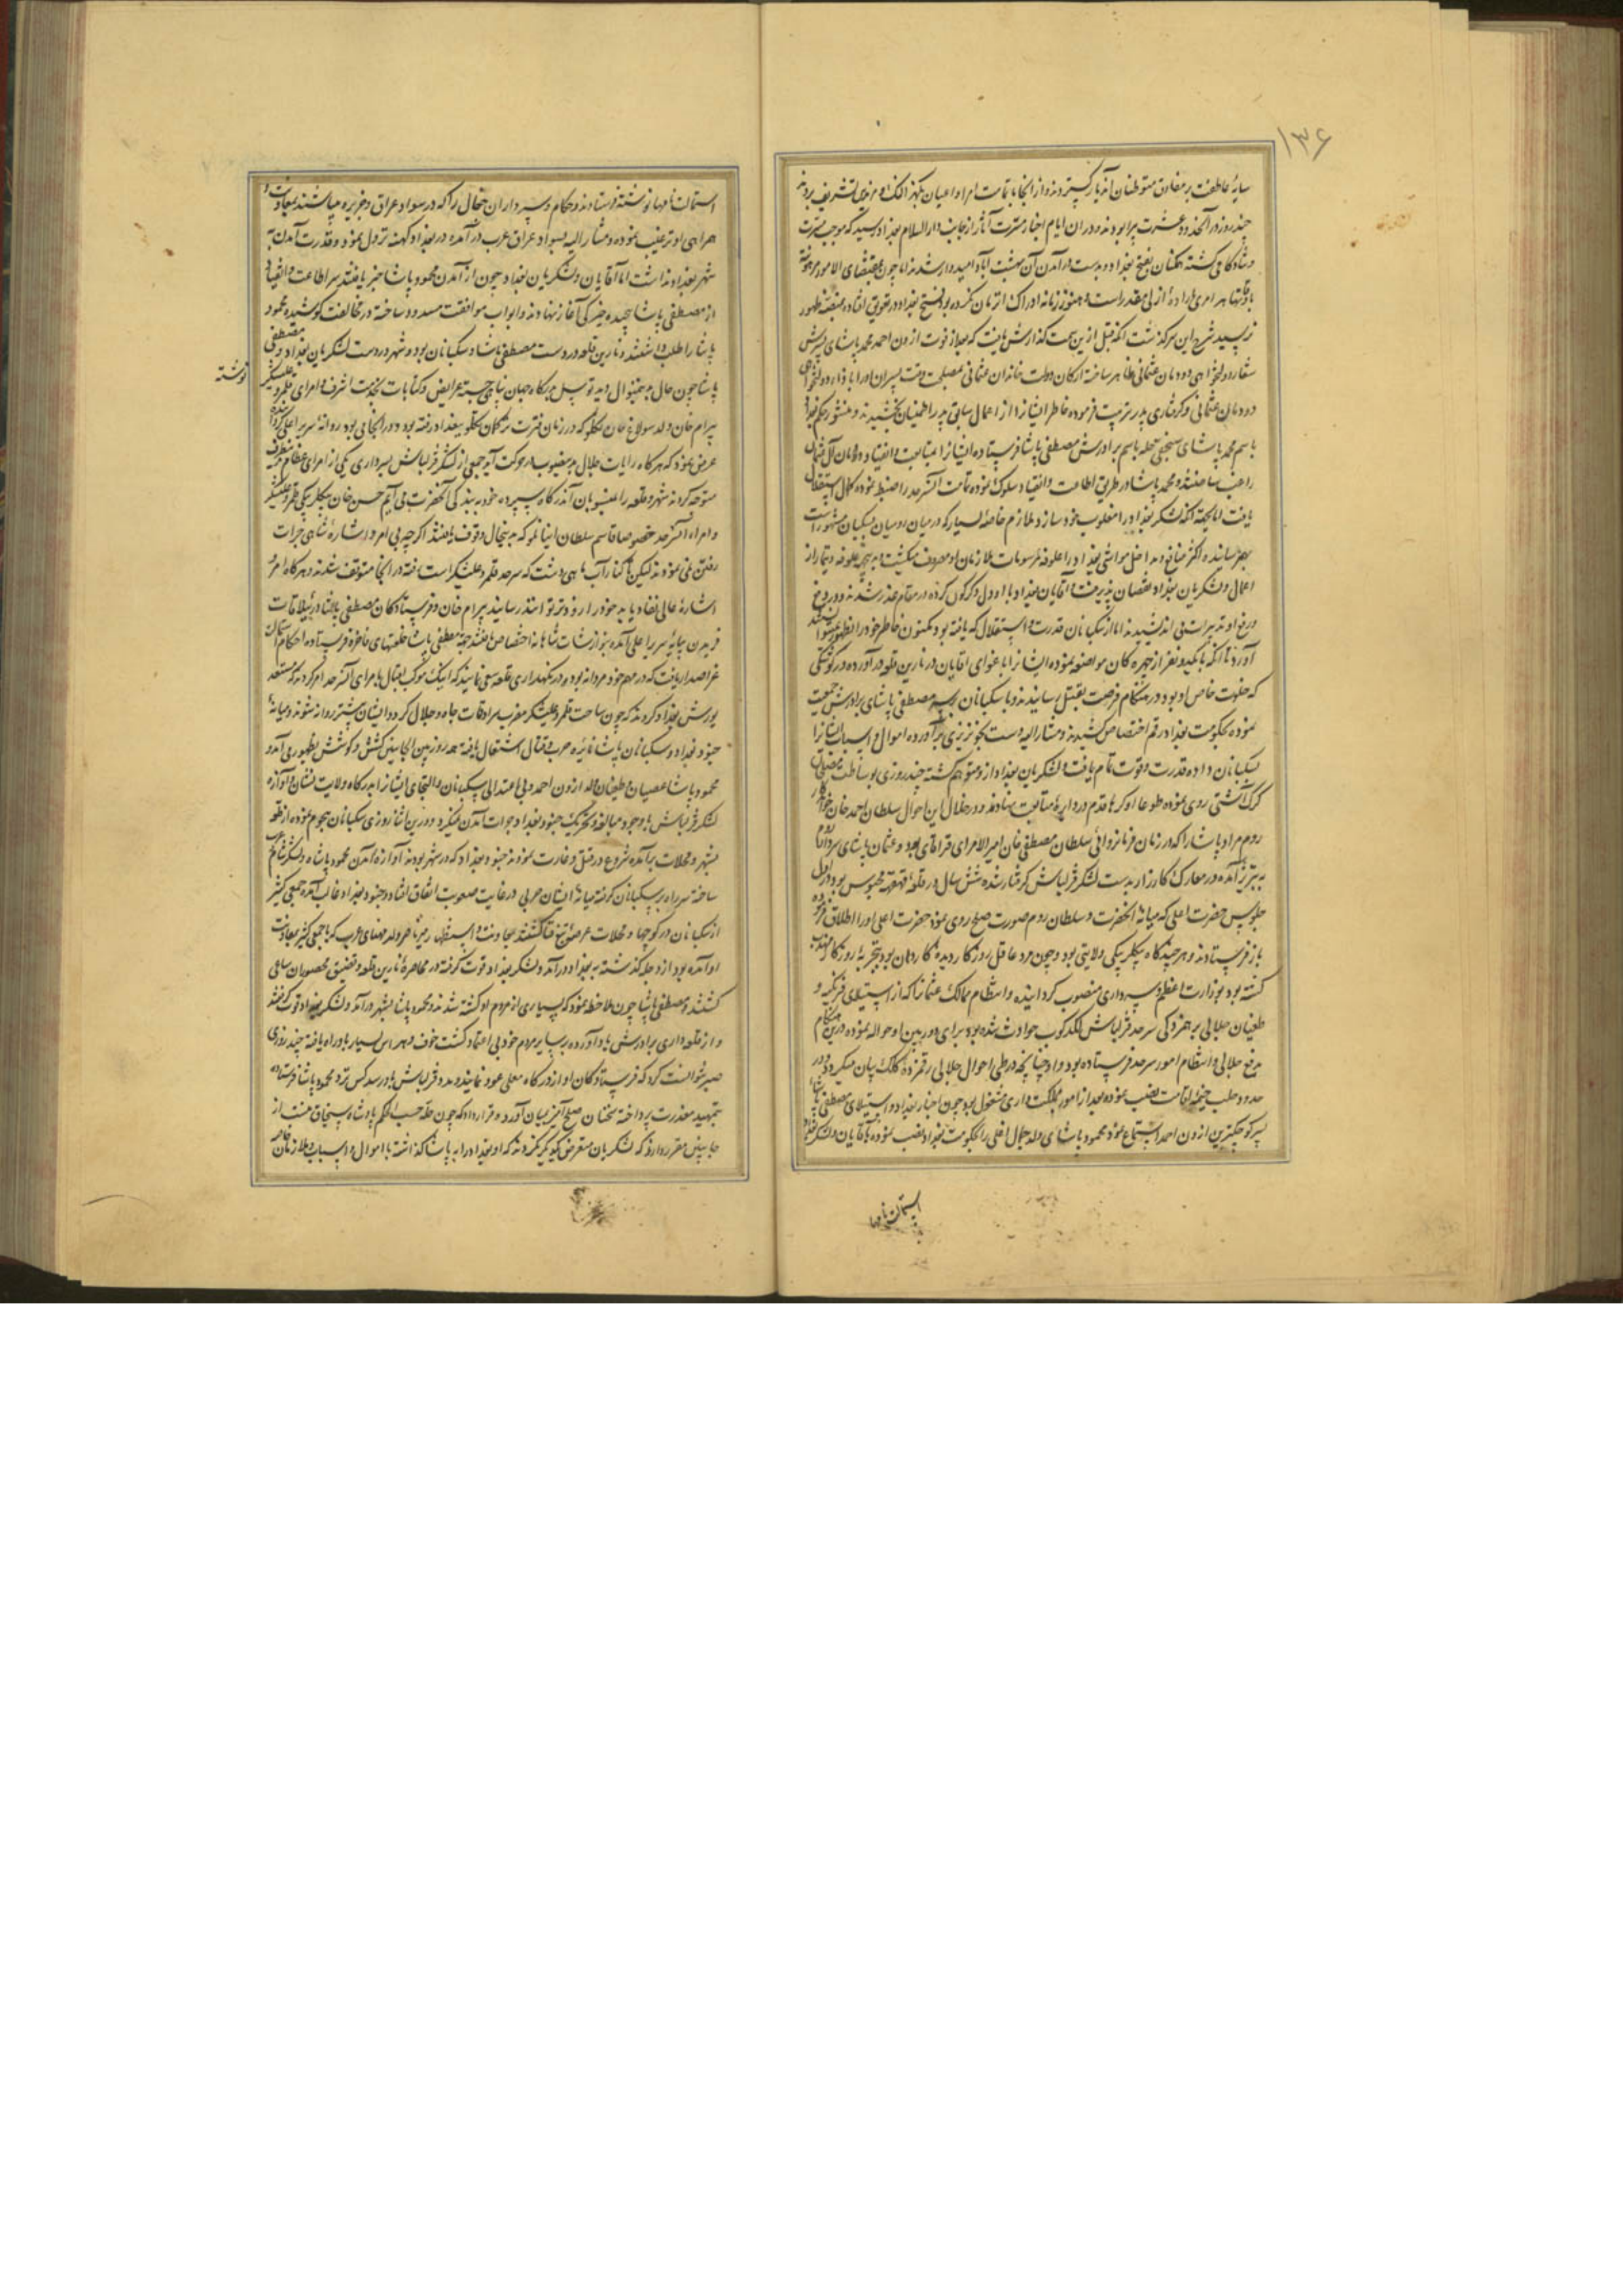 ۱۳۶
سایهٔ عاطفت بر مفارق متوطنان آندیار گسترده و از آنجا بتمامت امرا و اعیان
چند روز در آنحدود عشرت پیرا بودند و در ان ایام اخبار مسرت آثار از جانب دار السلام بغداد رسید که موجب مسرت
و شادکامی گشته همکنان بفتح بغداد و بدست در آمدن آن بهشت آباد امیدوار شدند اما چون بمقتضای الامور مرهونة
باوقاتها هر امری بارادهٔ ازلی مقدر است و هنوز زمانه ادراک آن زمان نکرده بود فتح بغداد در تعویق افتاده بمنصهٔ ظهور
نرسید شرح این سرگذشت آنکه قبل ازین سمت گذارش یافت که بعد از فوت ازون احمد محمد پاشای پسرش
شعار دولتخواهی دودمان عثمانی ظاهر ساخته ارکان دولت خاندان عثمانی بمصلحت وقت پسران او را
دودمان عثمانی و گرفتاری پدر تربیت فرموده خاطر ایشانرا از اعمال سابق پدر اطمینان بخشیدند و منشور حکم بغداد
باسم محمد پاشای سنجق حله باسم برادرش مصطفی پاشا فرستاده ایشانرا بمتابعت و انقیاد دودمان آل عثمان
راغب ساختند و محمد پاشا در طریق اطاعت و انقیاد سلوک نموده تمامت آنسرحد را ضبط نموده کمال استقلال
یافت و لشکر بغداد را مغلوب خود سازد ملازم خاصهٔ بسیار که در میان رومیان بسکبان مشهور است
بهم رسانیده و اکثر منافع و مداخل مواشی بغداد را علوفه و مرسومات ملازمان او مصروف میگشت
اعمال و لشکریان بغداد نقصان پذیرفت و آقایان بغداد با او دل دگرگون کرده در مقام غدر شدند و در
دفع او تدبیرات می اندیشیدند اما از سکبانان قدرت و استقلال که یافته بود مکنون خاطر خود را بظهور
آورد تا آنکه با یکدو نفر از چهره کان مواضعه نموده ایشانرا باغوای آقایان در نارین قلعه در آورده در کوشکی
که خلوت خاص او بود در هنگام فرصت بقتل رسانیدند و با سکبانان بر سر مصطفی پاشای برادرش جمعیت
نموده بحکومت بغداد رقم اختصاص کشیدند و مشار الیه دست بخونریزی برآورده اموال و اسباب ایشانرا
بسکبانان داده قدرت و قوت تمام یافت و لشکریان بغداد ازو متوهم گشته چند روزی بوساطت
گرگ آشتی روی نموده طوعا او کرها قدم در دایرهٔ متابعت نهادند و در خلال این احوال سلطان احمد خان
روم مراد پاشا را که در زمان فرمانروائی سلطان مصطفی خان امیر الامرای قرامان بود و عثمان پاشای سردار
به تبریز آمده در معارک کارزار بدست لشکر قزلباش گرفتار شده شش سال در قلعهٔ قهقهه محبوس بود و در اول
جلوس حضرت اعلی که میانهٔ آنحضرت و سلطان روم صورت صلح روی نمود حضرت اعلی او را اطلاق فرموده
باز فرستادند و هر چند گاه بیگلربیگی ولایتی بود و چون مرد عاقل روزگار دیدهٔ کاردان بود بتجربهٔ روزگار مهذب
گشته بود بوزارت اعظم و سرداری منصوب گردانیده و انتظام ممالک عثمانی که از استیلای فرنگیه و
طغیان جلالی بر همزدگی سرحد قزلباش لگدکوب حوادث شده بود برای دوربین او حواله نموده درین هنگام
بدفع جلالی و انتظام امور سرحد فرستاده بود و او چنانچه در طی احوال جلالی رقمزدهٔ کلک بیان میگردد در
حدود حلب خیمهٔ اقامت نصب نموده بعد از امور مملکت داری مشغول بود چون اخبار بغداد و استیلای مصطفی پاشا
پسر کوچکترین ازون احمد استماع نمود محمود پاشای ولد جغال اغلی را بحکومت بغداد نصب نموده بآقایان و لشکر بغداد
استمالت نامها
استمالت نامها نوشته فرستادند و حکام و سرداران محال را که در سواد عراق و جزیره میباشند بمعاونت و
همراهی او ترغیب نموده و مشار الیه بسواد عراق عرب در آمده در بغداد کهنه نزول نمود و قدرت آمدن به
شهر بغداد نداشت اما آقایان و لشکریان بغداد چون از آمدن محمود پاشا خبر یافتند سر اطاعت و انقیاد
از مصطفی پاشا پیچیده خیرگی آغاز نهادند و ابواب موافقت مسدود ساخته در مخالفت کوشیده محمود
پاشا را طلب داشتند و نارین قلعه در دست مصطفی پاشا و سکبانان بود و شهر در دست لشکریان بغداد و مصطفی
پاشا چون حال بدینمنوال دید توسل بدرگاه جهان پناهی جسته عرایض و کتابات بخدمت اشرف و امرای قلمرو علیشکر
نوشته
بیرام خان ولد سولاغ خان تکلو که در زمان فترت ترکمان و تکلو ببغداد رفته بود و در آنجا می بود روانهٔ سریر اعلی
عرض نمود که هر گاه رایات جلال بدینصوب در حرکت آید جمعی از لشکر قزلباش بسرداری یکی از امرای عظام
متوجه گردند شهر و قلعه را بمنسوبان آندرگاه سپرده خود به بندگی آنحضرت می آیم حسن خان بیگلربیگی قلمرو علیشکر
و امراء آنسرحد خصوصا قاسم سلطان اینانلو که بر اینحال وقوف یافتند اگر چه بی امر و اشارهٔ شاهی جرات
رفتن نمی نمودند لیکن تا کنار آب ماهی دشت که سرحد قلمرو علیشکر است رفته در آنجا متوقف شدند و هر گاه امر و
اشارهٔ عالی نفاذ یابد خود را زودتر توانند رسانید بیرام خان و فرستادگان مصطفی پاشا در ییلاقات
فریدن بپایهٔ سریر اعلی آمده بنوازشات شاهانه اختصاص یافتند جهة مصطفی پاشا خلعتهای فاخره فرستاده احکام استمالت
عز اصدار یافت که در مهم خود مردانه بوده در نگهداری قلعه سعی نمایند که اینک موکب اقبال بامرای آنسرحد امر کردند که مستعد
یورش بغداد گردند که چون ساحت قلمرو علیشکر مضرب سرادقات جاه و جلال گردد ایشان پیشتر روانه شوند و میانهٔ
جنود بغداد و سکبانان پاشا نایرهٔ حرب و قتال اشتعال یافته همه روز بین الجانبین کشش و کوشش بظهور می آمد و
محمود پاشا عصیان و طغیان ولد ازون احمد و بی اعتدالی سکبانان و التجای ایشانرا بدرگاه ولایت نشان و آوازهٔ
لشکر قزلباش با وجود مبالغه و تحریک جنود بغداد جرات آمدن نمیکرد و درین اثنا روزی سکبانان هجوم نموده از قلعه
بشهر و محلات برآمده شروع در قتل و غارت نمودند جنود بغداد که در شهر بودند آوازهٔ آمدن محمود پاشا و لشکر شام
ساخته سر راه بر سکبانان گرفته میانهٔ ایشان حربی در غایت صعوبت اتفاق افتاد و جنود بغداد غالب آمده جمعی کثیر
از سکبانان در کوچها و محلات عرضهٔ تیغ فنا گشتند بمعاونت و استظهار میر ناصر ولد مهنای عرب که با جمعی کثیر بمعاونت
او آمده بود از دجله گذشته به بغداد در آمد و لشکر بغداد قوت گرفته در محاصرهٔ نارین قلعه و تضییق محصوران ساعی
گشتند و مصطفی پاشا چون ملاحظه نمود که بسیاری از مردم او کشته شدند و محمود پاشا بشهر در آمد و لشکر بغداد قوت گرفتند
و از قلعه داری برادرش یاد آورده بر سایر مردم خود بی اعتماد گشت خوف و هراس بسیار باو راه یافته چند روزی
صبر نتوانست کرد که فرستادگان او از درگاه معلی عود نمایند و مدد قزلباش باو رسد کس نزد محمود پاشا فرستاده
بتمهید معذرت پرداخته سخنان صلح آمیز بمیان آورد و قرار داد که چون حله حسب الحکم پادشاه سنجاق منست از
جانبین مقرر دارند که لشکریان متعرض یکدیگر نگردند که او بغداد را به پاشا گذاشته با اموال و اسباب و ملازمان